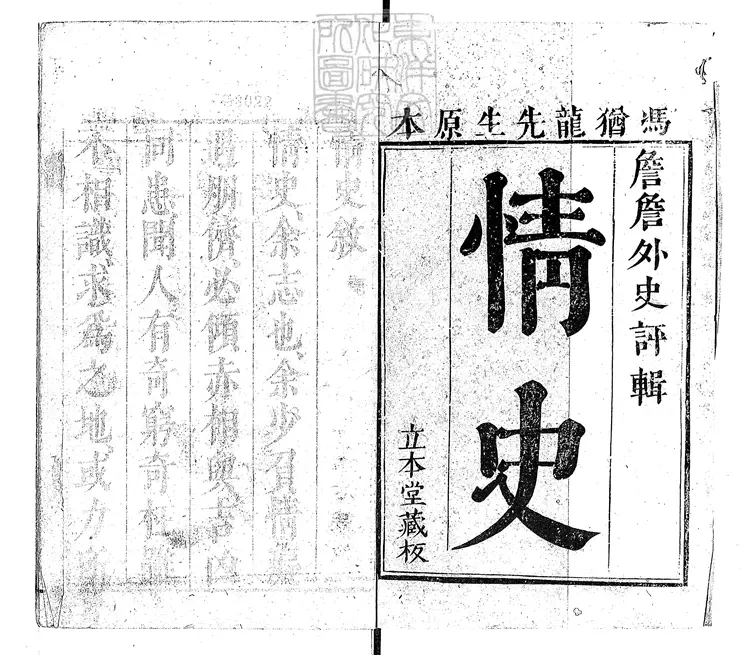 馮猶龍先生原本
詹詹外史評輯
情史
立本堂藏板
情史敘
情史余志也余少負情癡
遇朋儕必傾赤相與吉凶
同患聞人有奇窮奇枉雖
不相識求為之地或力所